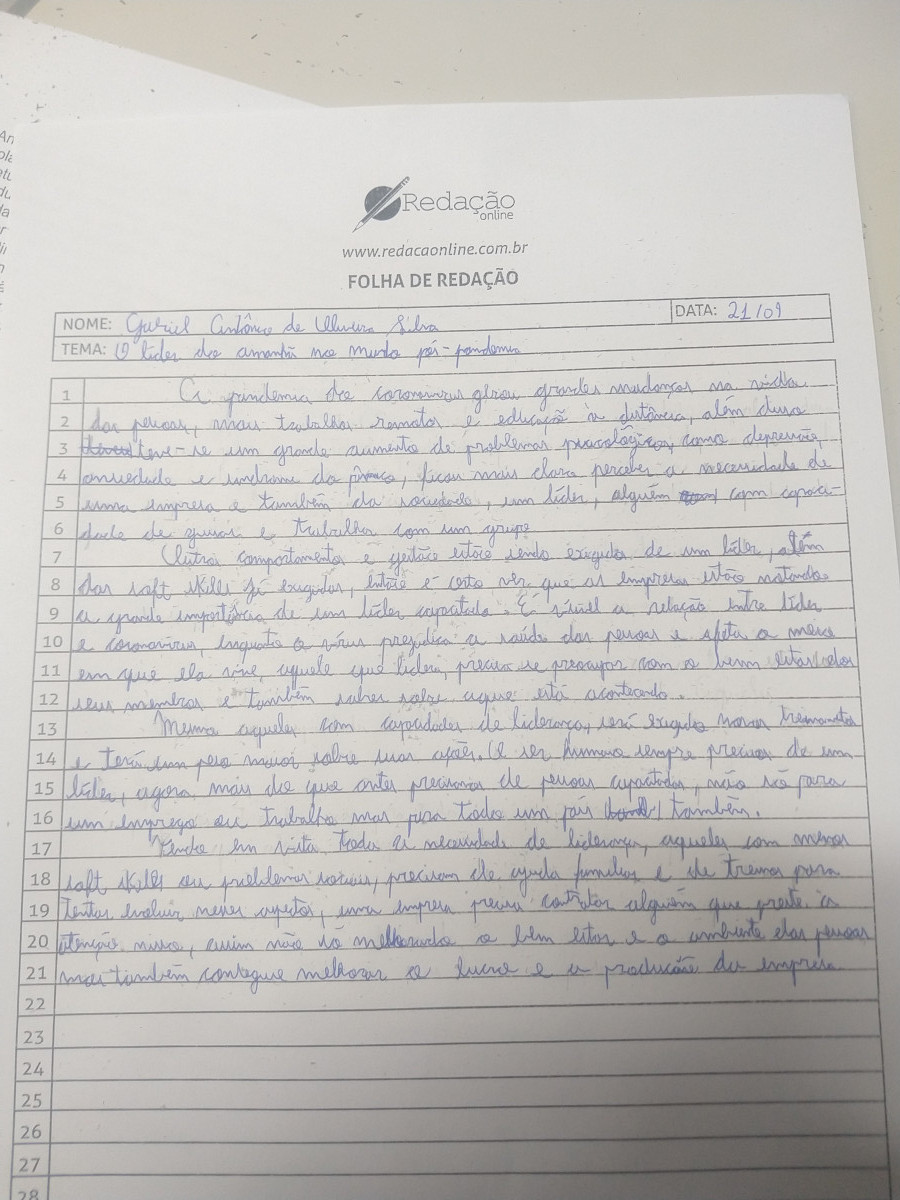 Redação
online
www.redacaonline.com.br
FOLHA DE REDAÇÃO
NOME: Antônio de Oliveira Silva
DATA: 21/09
TEMA: O líder do amanhã no mundo pós-pandemia
1 A pandemia do coronavirus gerou grandes mudanças na vida
2 das pessoas, mais trabalhos remotos e educação à distância, além disso
3 teve-se um grande aumento de problemas psicológicos, como depressão,
4 ansiedade e sindrome do pânico, ficou mais claro perceber a necessidade de
5 uma empresa e também da sociedade, um líder, alguém com capaci-
6 dade de guiar e trabalhar com um grupo
7 Outros comportamentos e estão sendo exigidos de um líder, além
8 das soft skills já exigidas, então é certo ver que as empresas estão notando
9 a grande importância de um líder capacitado. É vísivel a relação entre líder
10 e coronavirus, enquanto o vírus prejudica a saúde das pessoas e afeta o meio
11 em que ela vive, aquele que lidera, precisa se preocupar com o bem estar dos
12 seus membros e também saber sobre oque está acontecendo.
13 Mesmo aqueles com capacidades de liderança, será exigido novos treinamentos
14 e terá um peso maior sobre suas ações. O ser humano sempre precisou de um
15 líder, agora mais do que antes precisamos de pessoas capacitadas, não só para
16 um emprego ou trabalho mas para todo um país também.
17 Tendo em vista, toda a necessidade de liderança, aqueles com menos
18 soft skills ou problemas sociais, precisam de ajuda familiar e de treinos para
19 tentar evoluir nesses aspectos, uma empresa precisa contratar alguém que preste a
20 atenção nisso, assim não só melhorando o bem estar e o ambiente das pessoas
21 mas também consegue melhorar o lucro e a produção da empresa.
22
23
24
25
26
27
28